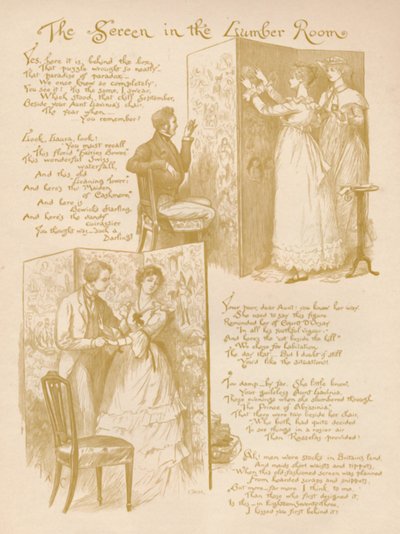 The Screen in the Lumber Room
Yes, here it is, behind the box,
That puzzle wrought so neatly—
That paradise of paradox—
We once knew so completely;
You see it? 'Tis the same, I swear,
Which stood, that chill September,
Beside your Aunt Lavinia's chair,
The year when
You remember!
Look, Laura, look!
You must recall
This florid "Fairies' Bower,"
This wonderful Swiss
waterfall,
And this old
"Leaning Tower";
And here's the "Maiden
of Cashmere,"
And here is
Bewick's starling,
And here's the dandy
cuirassier
You thought was such a
Darling!
Your poor dear Aunt! you know her way,
She used to say this figure
Reminded her of Count D'Orsay
"In all his youthful vigour";
And here's the "cot beside the hill"
We chose for habitation,
The day that— But I doubt if still
You'd like the situation!
Too damp—by far. She little knew,
Your guileless Aunt Lavinia,
Those evenings when she slumbered through
"The Prince of Abyssinia,"
That there were two beside her chair,
Who both had quite decided
To see things in a rosier air
Than Rasselas provided!
Ah! men wore stocks in Britain's land,
And maids short waists and tippets,
When this old-fashioned screen was planned
From hoarded scraps and snippets;
But more—far more, I think—to me
Than those who first designed it,
Is this—in Eighteen Seventy-Three,
I kissed you first behind it!